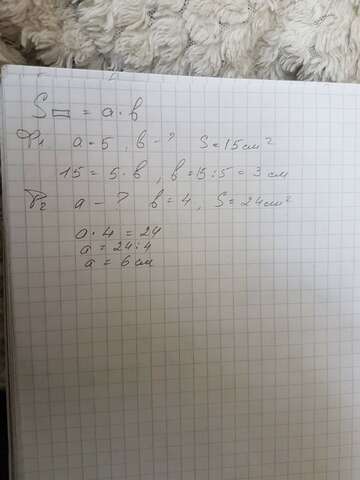 S▭ = a·b
Ф₁ a=5, b-? S=15см²
15 = 5·b, b=15:5=3 см
₂ a-? b=4, S=24см²
a·4=24
a=24:4
a=6см